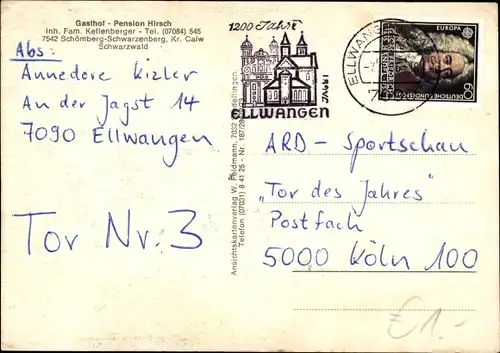 Gasthof - Pension Hirsch
Inh. Fam. Kellenberger - Tel. (07084) 545
7542 Schömberg-Schwarzenberg, Kr. Calw
Schwarzwald
Abs:
Annedere Kizler
An der Jagst 14
7090 Ellwangen
Tor Nr. 3
Ansichtskartenverlag W. Feldmann, 7032
Telefon (07031) 8 41 25 - Nr.
1200 Jahre
ELLWANGEN
JAGST
ELLWANGEN
EUROPA
DEUTSCHE BUNDESPOST
60
ARD - Sportschau
„Tor des Jahres"
Postfach
5000 Köln 100
€1.-